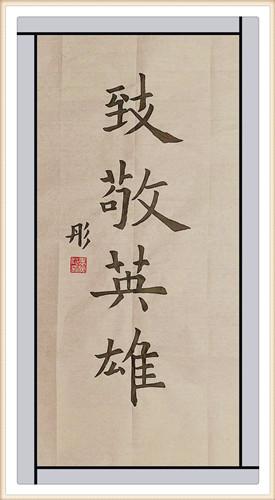 致敬英雄
彤